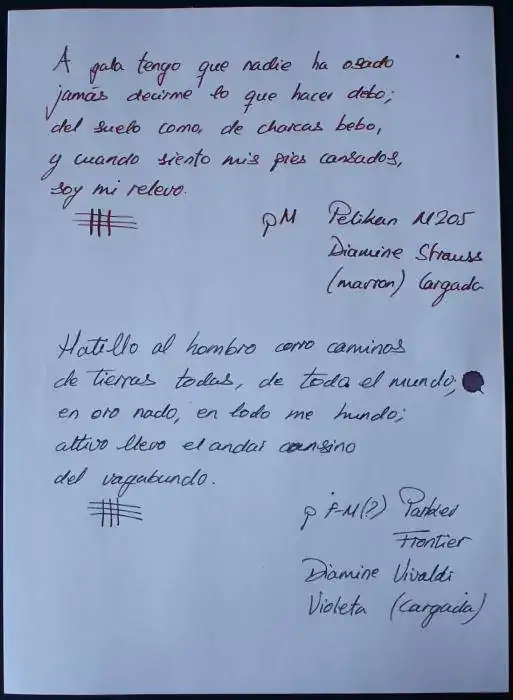 A gala tengo que nadie ha osado
jamás decirme lo que hacer debo;
del suelo como, de charcas bebo,
y cuando siento mis pies cansados,
soy mi relevo.
pM Pelikan M205
Diamine Strauss
(marron) Cargada
Hatillo al hombro corro caminos
de tierras todas, de toda el mundo;
en oro nado, en lodo me hundo;
altivo llevo el andar cansino
del vagabundo.
p F-M(?) Parker
Frontier
Diamine Vivaldi
Violeta (Cargada)